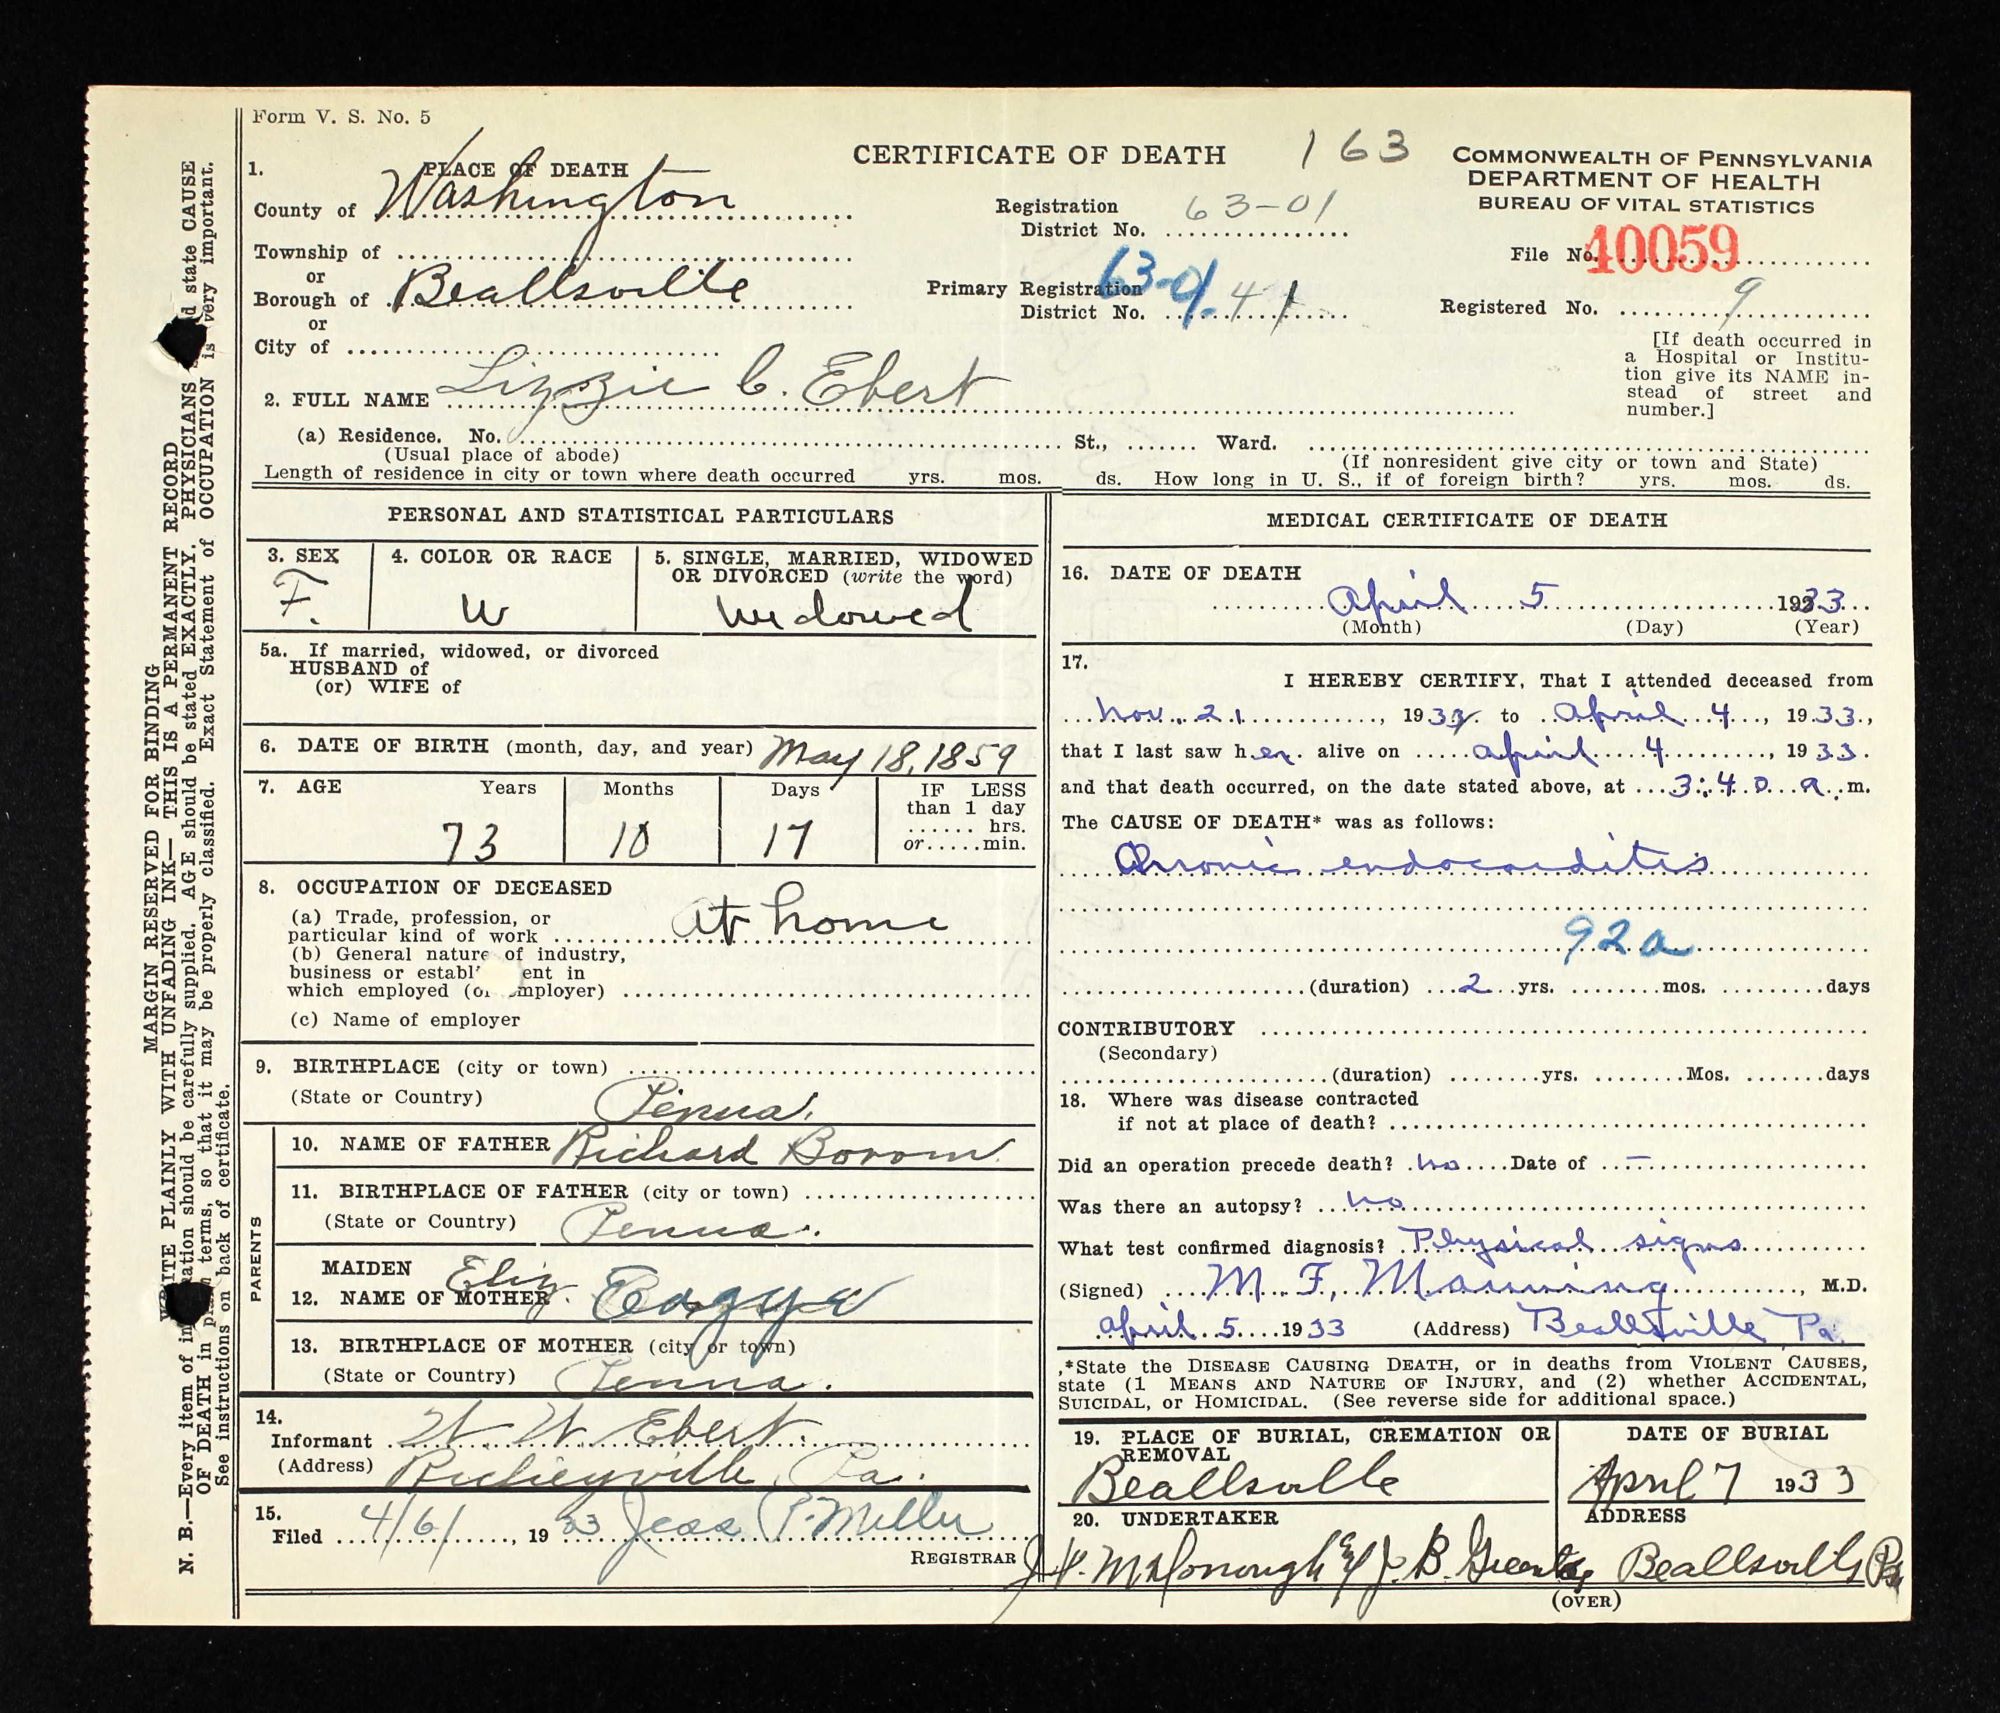 Form V. S. No. 5
CERTIFICATE OF DEATH
163
COMMONWEALTH OF PENNSYLVANIA
DEPARTMENT OF HEALTH
BUREAU OF VITAL STATISTICS
1. PLACE OF DEATH
County of Washington
Township of
or
Borough of Beallsville
or
City of
Registration District No. 63-01
Primary Registration District No. 63-01. 41
File No. 40059
Registered No. 9
[If death occurred in
a Hospital or Institu-
tion give its NAME in-
stead of street and
number.]
2. FULL NAME Lizzie C. Ebert
(a) Residence. No. St., Ward.
(Usual place of abode) (If nonresident give city or town and State)
Length of residence in city or town where death occurred yrs. mos. ds. How long in U. S., if of foreign birth? yrs. mos. ds.
PERSONAL AND STATISTICAL PARTICULARS
3. SEX
F.
4. COLOR OR RACE
W
5. SINGLE, MARRIED, WIDOWED
OR DIVORCED (write the word)
Widowed
5a. If married, widowed, or divorced
HUSBAND of
(or) WIFE of
6. DATE OF BIRTH (month, day, and year) May 18, 1859
7. AGE Years Months Days IF LESS
than 1 day
hrs.
or min.
73 10 17
8. OCCUPATION OF DECEASED
(a) Trade, profession, or
particular kind of work At home
(b) General nature of industry,
business or establ ent in
which employed (or employer)
(c) Name of employer
9. BIRTHPLACE (city or town)
(State or Country) Penna.
PARENTS
10. NAME OF FATHER Richard
11. BIRTHPLACE OF FATHER (city or town)
(State or Country) Penna.
12. MAIDEN NAME OF MOTHER Eliz.
13. BIRTHPLACE OF MOTHER (city or town)
(State or Country) Penna.
14.
Informant W. W. Ebert.
(Address) Richeyville, Pa.
15.
Filed 4/6/, 1933 Jess P. Miller
REGISTRAR
MEDICAL CERTIFICATE OF DEATH
16. DATE OF DEATH
April 5 1933
(Month) (Day) (Year)
17.
I HEREBY CERTIFY, That I attended deceased from
Nov. 21, 193 to April 4, 1933,
that I last saw her alive on April 4, 1933.
and that death occurred, on the date stated above, at 3:40 a. m.
The CAUSE OF DEATH* was as follows:
Chronic endocarditis
92a
(duration) 2 yrs. mos. days
CONTRIBUTORY
(Secondary)
(duration) yrs. Mos. days
18. Where was disease contracted
if not at place of death?
Did an operation precede death? no Date of —
Was there an autopsy? no
What test confirmed diagnosis? Physical signs
(Signed) M. F. Manning, M.D.
April 5 1933 (Address) Beallsville, Pa.
*State the DISEASE CAUSING DEATH, or in deaths from VIOLENT CAUSES,
state (1 MEANS AND NATURE OF INJURY, and (2) whether ACCIDENTAL,
SUICIDAL, or HOMICIDAL. (See reverse side for additional space.)
19. PLACE OF BURIAL, CREMATION OR
REMOVAL
Beallsville
DATE OF BURIAL
April 7 1933
20. UNDERTAKER
J. B.
ADDRESS
Beallsville Pa
(OVER)
MARGIN RESERVED FOR BINDING
WRITE PLAINLY WITH UNFADING INK—THIS IS A PERMANENT RECORD
N. B.—Every item of in ation should be carefully supplied. AGE should be stated EXACTLY. PHYSICIANS d state CAUSE
OF DEATH in plain terms, so that it may be properly classified. Exact Statement of OCCUPATION is very important.
See instructions on back of certificate.